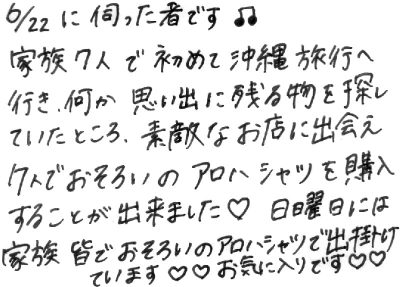 6/22 に 伺った者です ♫
家族 7人 で 初めて 沖縄 旅行へ
行き、何か 思い出に残る物を探し
ていたところ、素敵なお店に出会え
7人でおそろいの アロハ シャツ を 購入
することが 出来ました♡ 日曜日には
家族 皆でおそろいのアロハシャツで出掛け
ています ♡♡ お気に入りです♡♡